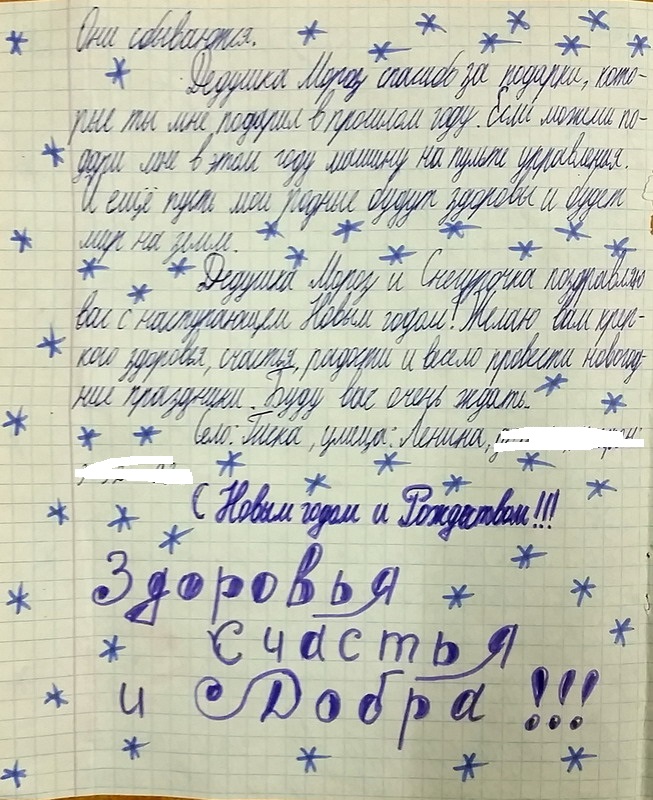 Они сбываются.
Дедушка Мороз спасибо за подарки, кото-
рые ты мне подарил в прошлом году. Если можеш по-
дари мне в этом году машину на пульте управления.
И ещё пусть мои родные будут здоровы и будет
мир на земле.
Дедушка Мороз и Снегурочка поздравляю
вас с наступающем Новым годом! Желаю вам креп-
кого здоровья, счастья, радости и весело провести новогод-
ние праздники. Буду вас очень ждать.
Село: Гиска, улица: Ленина,
С Новым годом и Рождеством!!!
Здоровья
Счастья
и Добра!!!